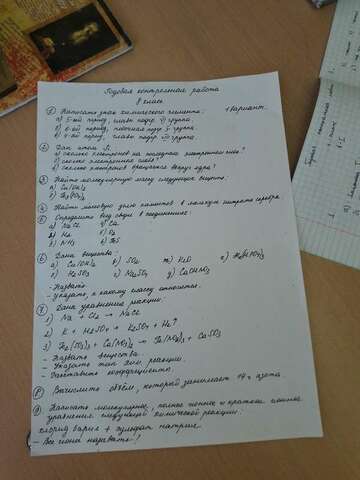 Годовая контрольная работа
8 класс
1 вариант.
① Написать знак химического элемента:
а) 5-ый период, главн. подгр. V группа.
б) 6-ой период, побочная подгр. V группа.
в) 4-ый период, главн. подгр. VI группа.
② Дан атом Si.
а) сколько электронов на последнем электронном слое?
б) сколько электронных слоёв?
в) сколько электронов вращается вокруг ядра?
③ Найти молекулярную массу следующих веществ:
а) Ca(OH)2
④ Найти массовую долю элементов в молекуле нитрата серебра
⑤ Определите вид связи в соединениях:
а) NaCl г) Ca
б) H2 д) O2
в) NH3
⑥ Дана вещества:
а) Ca(OH)2 в) SO2
б) H2SO3 г) Na2SO4
- Назвать
- указать, к какому классу относятся.
⑦ Дана уравнение реакции:
1) Na + Cl2 → NaCl
2) K + H2SO4 → K2SO4 + H2↑
- Назвать вещества
- Указать тип хим. реакции.
- Расставить коэффициенты.
⑧ Вычислите объём, который занимает 14г азота.
⑨ Написать молекулярное, полное ионное и краткое ионное
уравнения следующей химической реакции:
хлорид бария + сульфат натрия
- Все ионы назвать!